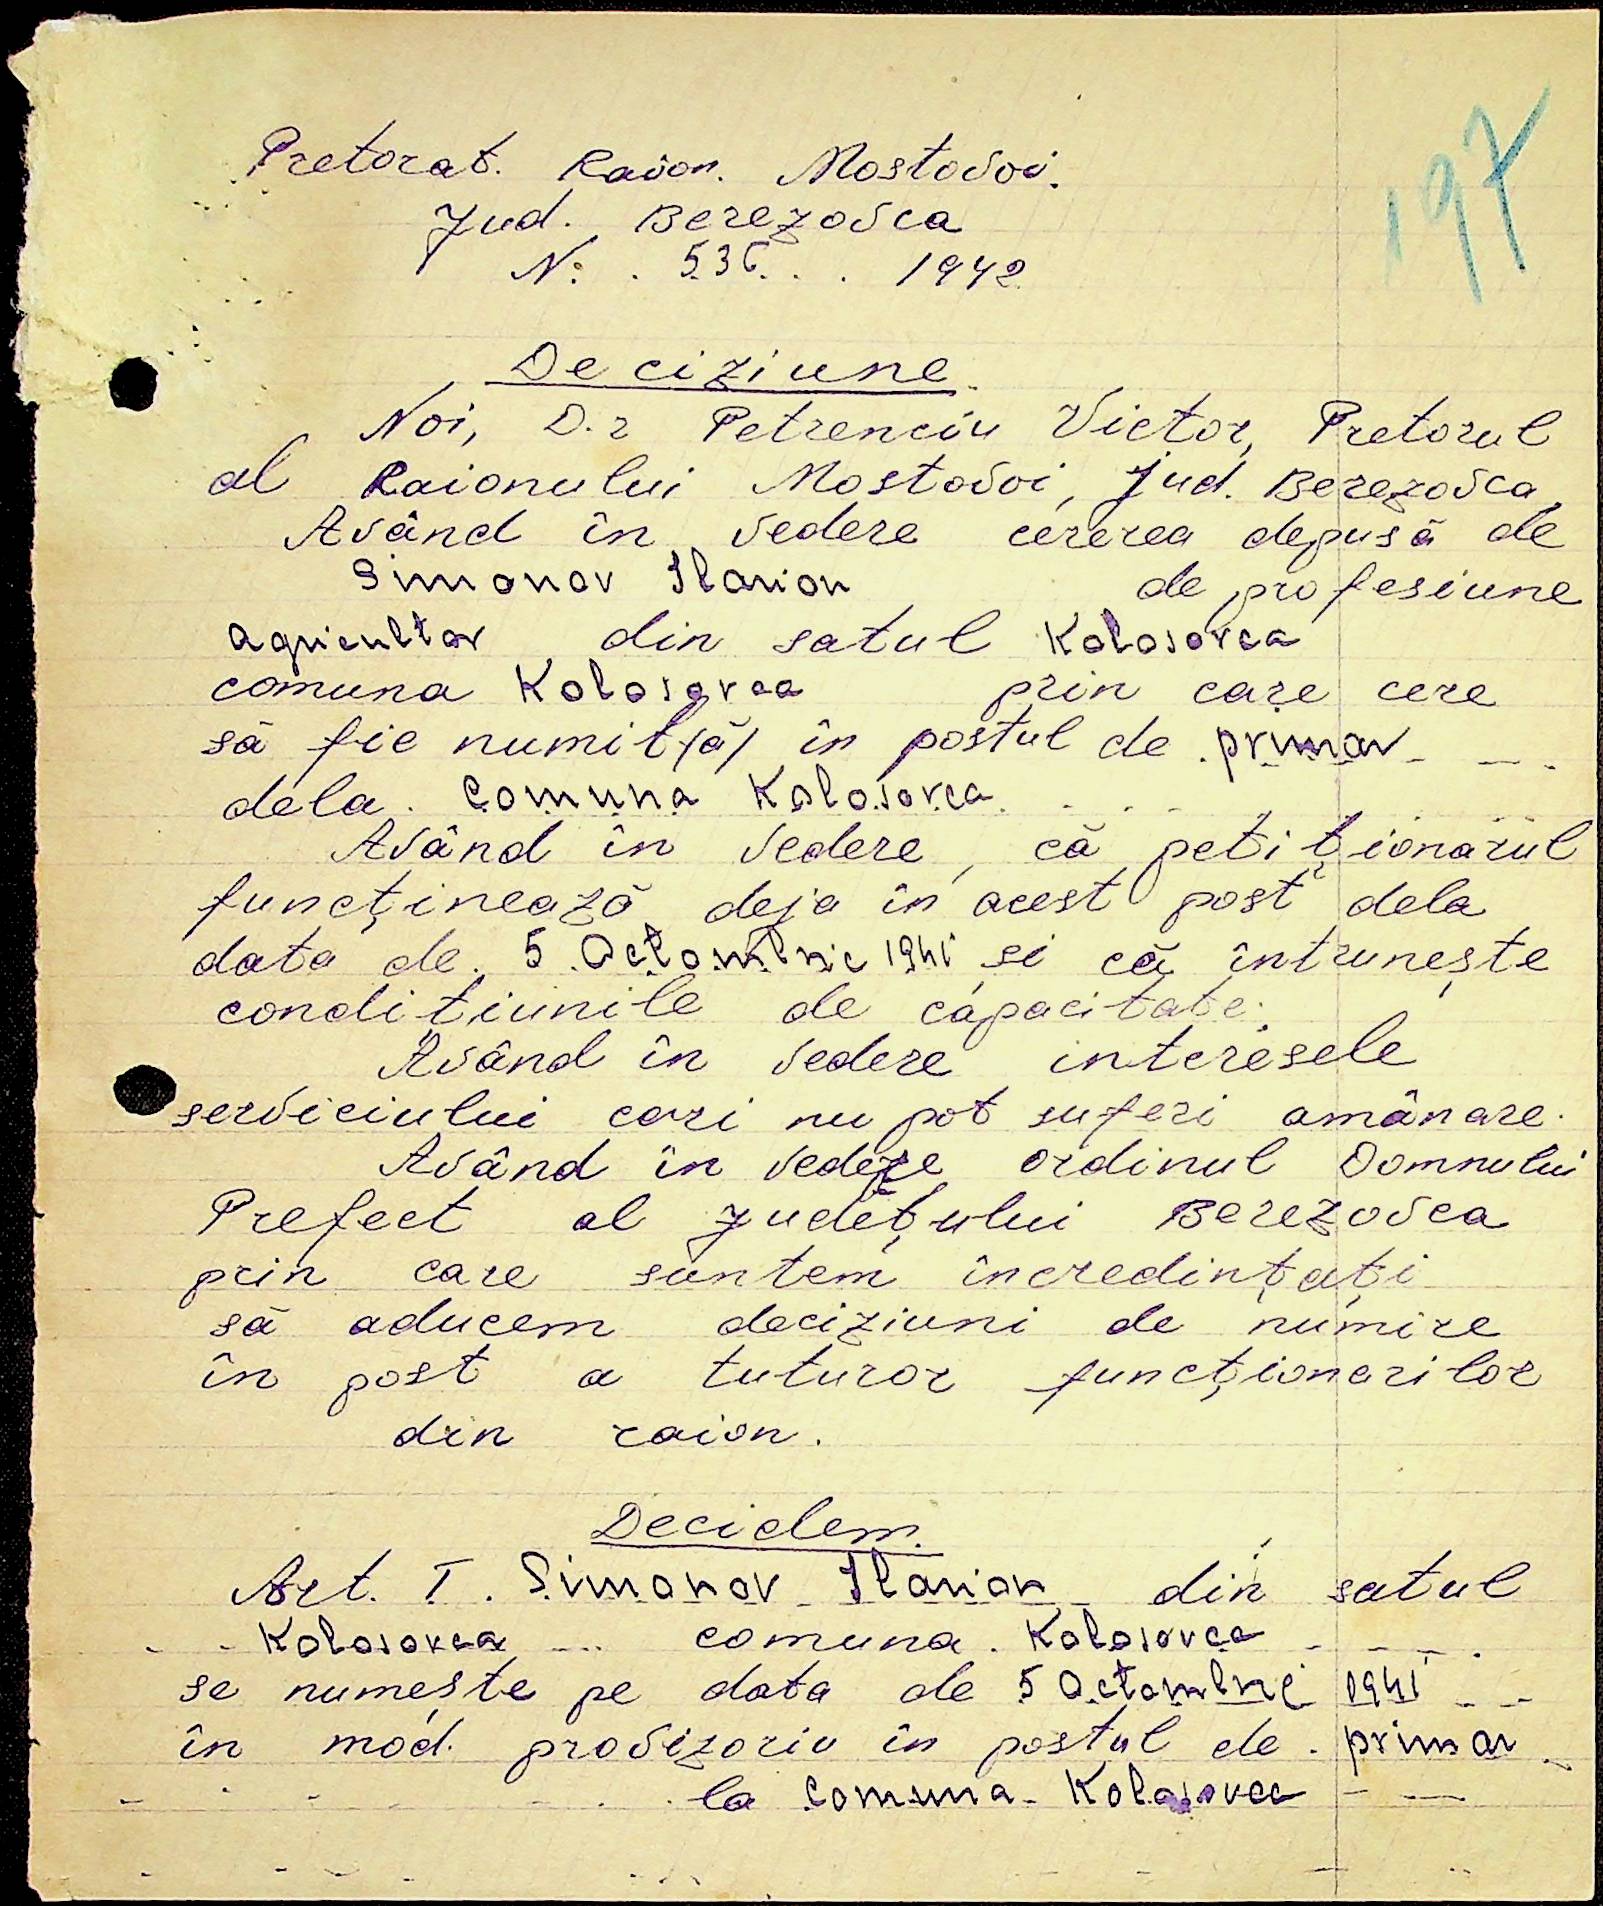 197
Pretorat. Raion. Mostovoi.
Jud. Berezovca
N: . 536. . . 1942
Deciziune.
Noi, D.r Petrenciu Victor, Pretorul
al Raionului Mostovoi, Jud. Berezovca,
Având în vedere cererea depusă de
Simonov Ilarion de profesiune
agricultor din satul Kolosovca
comuna Kolosovca prin care cere
să fie numit/ă/ în postul de primar
dela. Comuna Kolosovca
Având în vedere, că petiționarul
funcținează deja în acest post dela
data de 5 Octombrie 1941 și că întrunește
condițiunile de capacitate.
Având în vedere interesele
serviciului cari nu pot suferi amânare.
Având în vedere ordinul Domnului
Prefect al Județului Berezovca
prin care suntem încredințați
să aducem deciziuni de numire
în post a tuturor funcționarilor
din raion.
Decidem.
Art. I. Simonov Ilarion din satul
Kolosovca comuna. Kolosovca
se numește pe data de 5 Octombrie 1941
în mod. provizoriu în postul de . primar
la Comuna Kolosovca